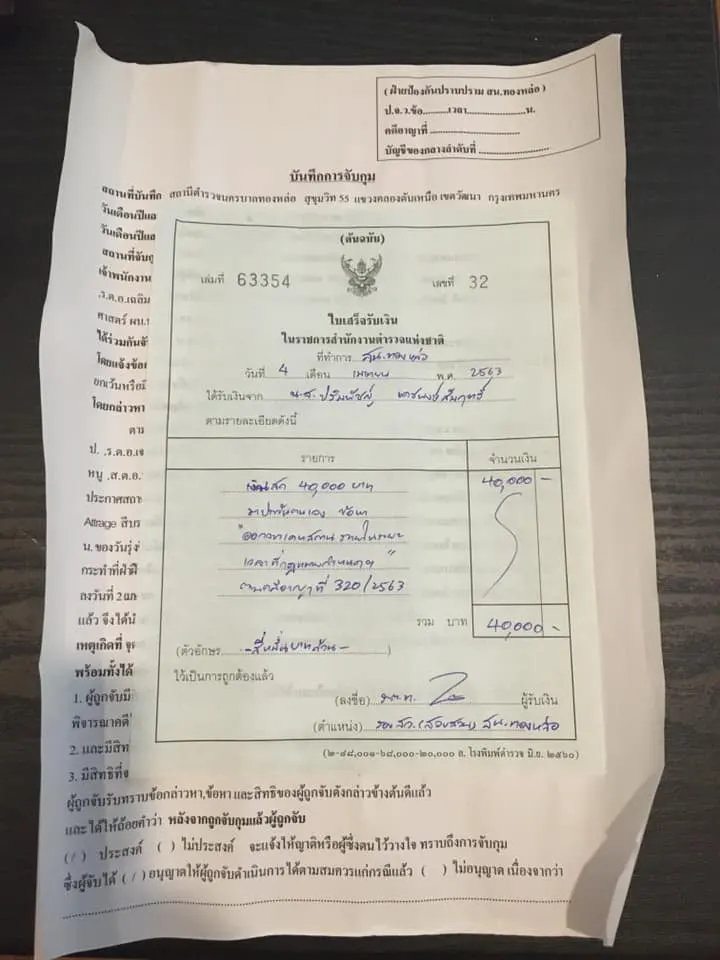 ( ฝ่ายป้องกันปราบปราม สน.ทองหล่อ )
ป.จ.ว.ข้อ.........เวลา..................น.
คดีอาญาที่ ............................
บัญชีของกลางลำดับที่ ......................
บันทึกการจับกุม
สถานที่บันทึก สถานีตำรวจนครบาลทองหล่อ สุขุมวิท 55 แขวงคลองตันเหนือ เขตวัฒนา กรุงเทพมหานคร
วันเดือนปีและ
วันเดือนปีและ
สถานที่จับกุ
เจ้าพนักงาน
.ร.ต.อ.เฉลิม
ศาสตร์ ผบ.
ได้ร่วมกันจั
โดยแจ้งข้อ
ยกเว้นหรือมี
โดยกล่าวหา
ตาม
ป. ,ร.ต.อ.เ
หนู ,ส.ต.อ.
ประกาศสถา
Attrage สีบร
น. ของวันรุ่ง
กระทำที่ฝ่าฝื
ลงวันที่ 2 เม
แล้ว จึงได้นำ
เหตุเกิดที่
พร้อมทั้งได้
1. ผู้ถูกจับมี
พิจารณาคดี
2. และมีสิท
3. มีสิทธิที่จ
(ต้นฉบับ)
เล่มที่ 63354 เลขที่ 32
ใบเสร็จรับเงิน
ในราชการสำนักงานตำรวจแห่งชาติ
ที่ทำการ สน.ทองหล่อ
วันที่ 4 เดือน เมษายน พ.ศ. 2563
ได้รับเงินจาก น.ส.
ตามรายละเอียดดังนี้
รายการ จำนวนเงิน
เงินสด 40,000 บาท 40,000 -
มาประกันตนเอง ข้อหา
"ออกนอกเคหสถาน ภายในระยะ
เวลาที่กฎหมายกำหนดฯ"
ตามคดีอาญาที่ 320/2563
รวม บาท 40,000 -
(ตัวอักษร -สี่หมื่นบาทถ้วน- )
ไว้เป็นการถูกต้องแล้ว
(ลงชื่อ) พ.ต.ท. ผู้รับเงิน
(ตำแหน่ง) รอง สว.(สอบสวน) สน.ทองหล่อ
(๒-๔๘,๐๐๑-๖๘,๐๐๐-๒๐,๐๐๐ ล. โรงพิมพ์ตำรวจ มิ.ย. ๒๕๖๐)
ผู้ถูกจับรับทราบข้อกล่าวหา,ข้อหา และสิทธิของผู้ถูกจับดังกล่าวข้างต้นดีแล้ว
และได้ให้ถ้อยคำว่า หลังจากถูกจับกุมแล้วผู้ถูกจับ
( / ) ประสงค์ ( ) ไม่ประสงค์ จะแจ้งให้ญาติหรือผู้ซึ่งตนไว้วางใจ ทราบถึงการจับกุม
ซึ่งผู้จับได้ ( / ) อนุญาตให้ผู้ถูกจับดำเนินการได้ตามสมควรแก่กรณีแล้ว ( ) ไม่อนุญาต เนื่องจากว่า